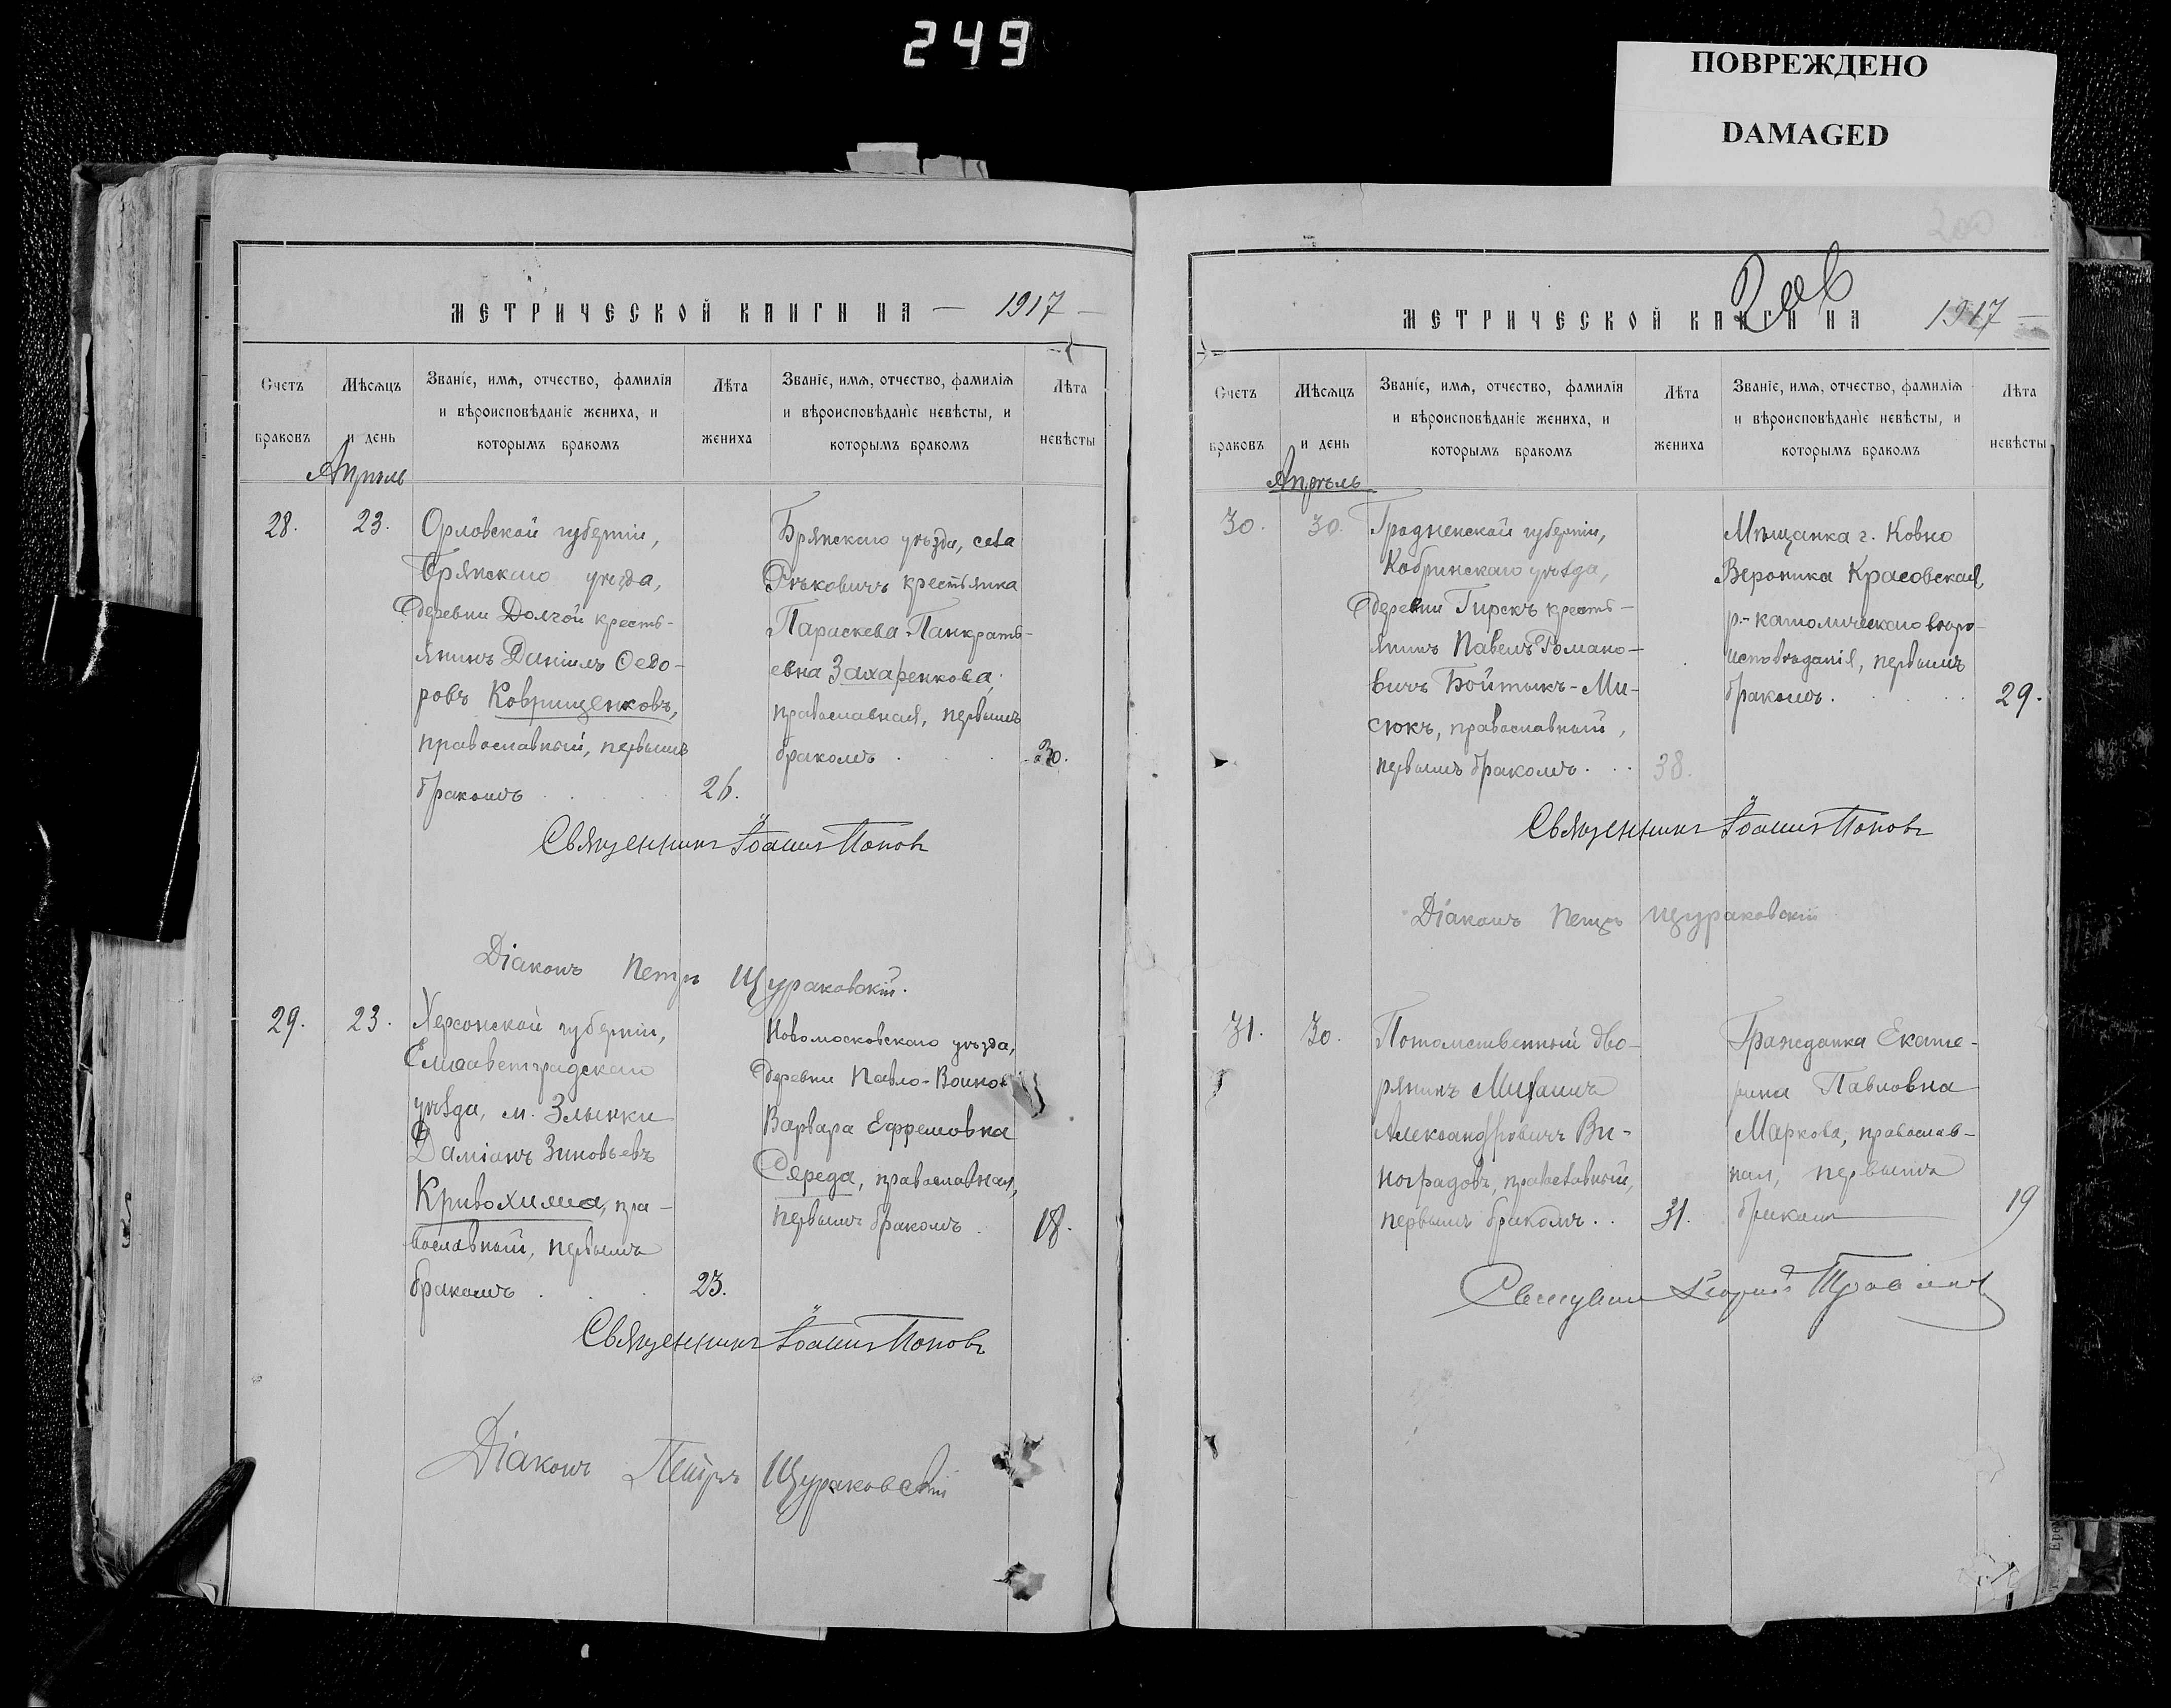 249
ПОВРЕЖДЕНО
DAMAGED
МЕТРИЧЕСКОЙ КНИГИ НА — 1917 —
Счетъ браковъ
Мѣсяцъ и день
Званіе, имя, отчество, фамилія
и вѣроисповѣданіе жениха, и
которымъ бракомъ
Лѣта жениха
Званіе, имя, отчество, фамилія
и вѣроисповѣданіе невѣсты, и
которымъ бракомъ
Лѣта невѣсты
Апрѣль
28.
23.
Орловской губерніи,
Брянскаго уѣзда,
деревни Долгой кресть-
янинъ Даніилъ Ѳедо-
ровъ Коврищенковъ,
православный, первымъ
бракомъ . . . .
26.
Брянскаго уѣзда, села
крестьянка
Параскева Панкрать-
евна Захаренкова,
православная, первымъ
бракомъ . . .
30.
Священникъ Іоаннъ Поповъ
Діаконъ Петръ Щураковскій.
29.
23.
Херсонской губерніи,
Елисаветградскаго
уѣзда, м. Злынки
Даміанъ Зиновьевъ
Кривохижа, пра-
вославный, первымъ
бракомъ . . .
23.
Новомосковскаго уѣзда,
деревни Павло-
Варвара Ефремовна
Середа, православная,
первымъ бракомъ .
18.
Священникъ Іоаннъ Поповъ
Діаконъ Петръ Щураковскій
200
МЕТРИЧЕСКОЙ КНИГИ НА 1917 —
Счетъ браковъ
Мѣсяцъ и день
Званіе, имя, отчество, фамилія
и вѣроисповѣданіе жениха, и
которымъ бракомъ
Лѣта жениха
Званіе, имя, отчество, фамилія
и вѣроисповѣданіе невѣсты, и
которымъ бракомъ
Лѣта невѣсты
Апрѣль
30.
30.
Гродненской губерніи,
Кобринскаго уѣзда,
деревни Гирскъ кресть-
янинъ Павелъ Романо-
вичъ Войтыкъ-Ми-
сюкъ, православный,
первымъ бракомъ . . .
38.
Мѣщанка г. Ковно
Вероника Красовская,
р.-католическаго вѣро-
исповѣданія, первымъ
бракомъ. . . .
29.
Священникъ Іоаннъ Поповъ
Діаконъ Петръ Щураковскій
31.
30.
Потомственный дво-
рянинъ Михаилъ
Александровичъ Ви-
ноградовъ, православный,
первымъ бракомъ . .
31.
Гражданка Екате-
рина Павловна
Маркова, православ-
ная, первымъ
бракомъ
19